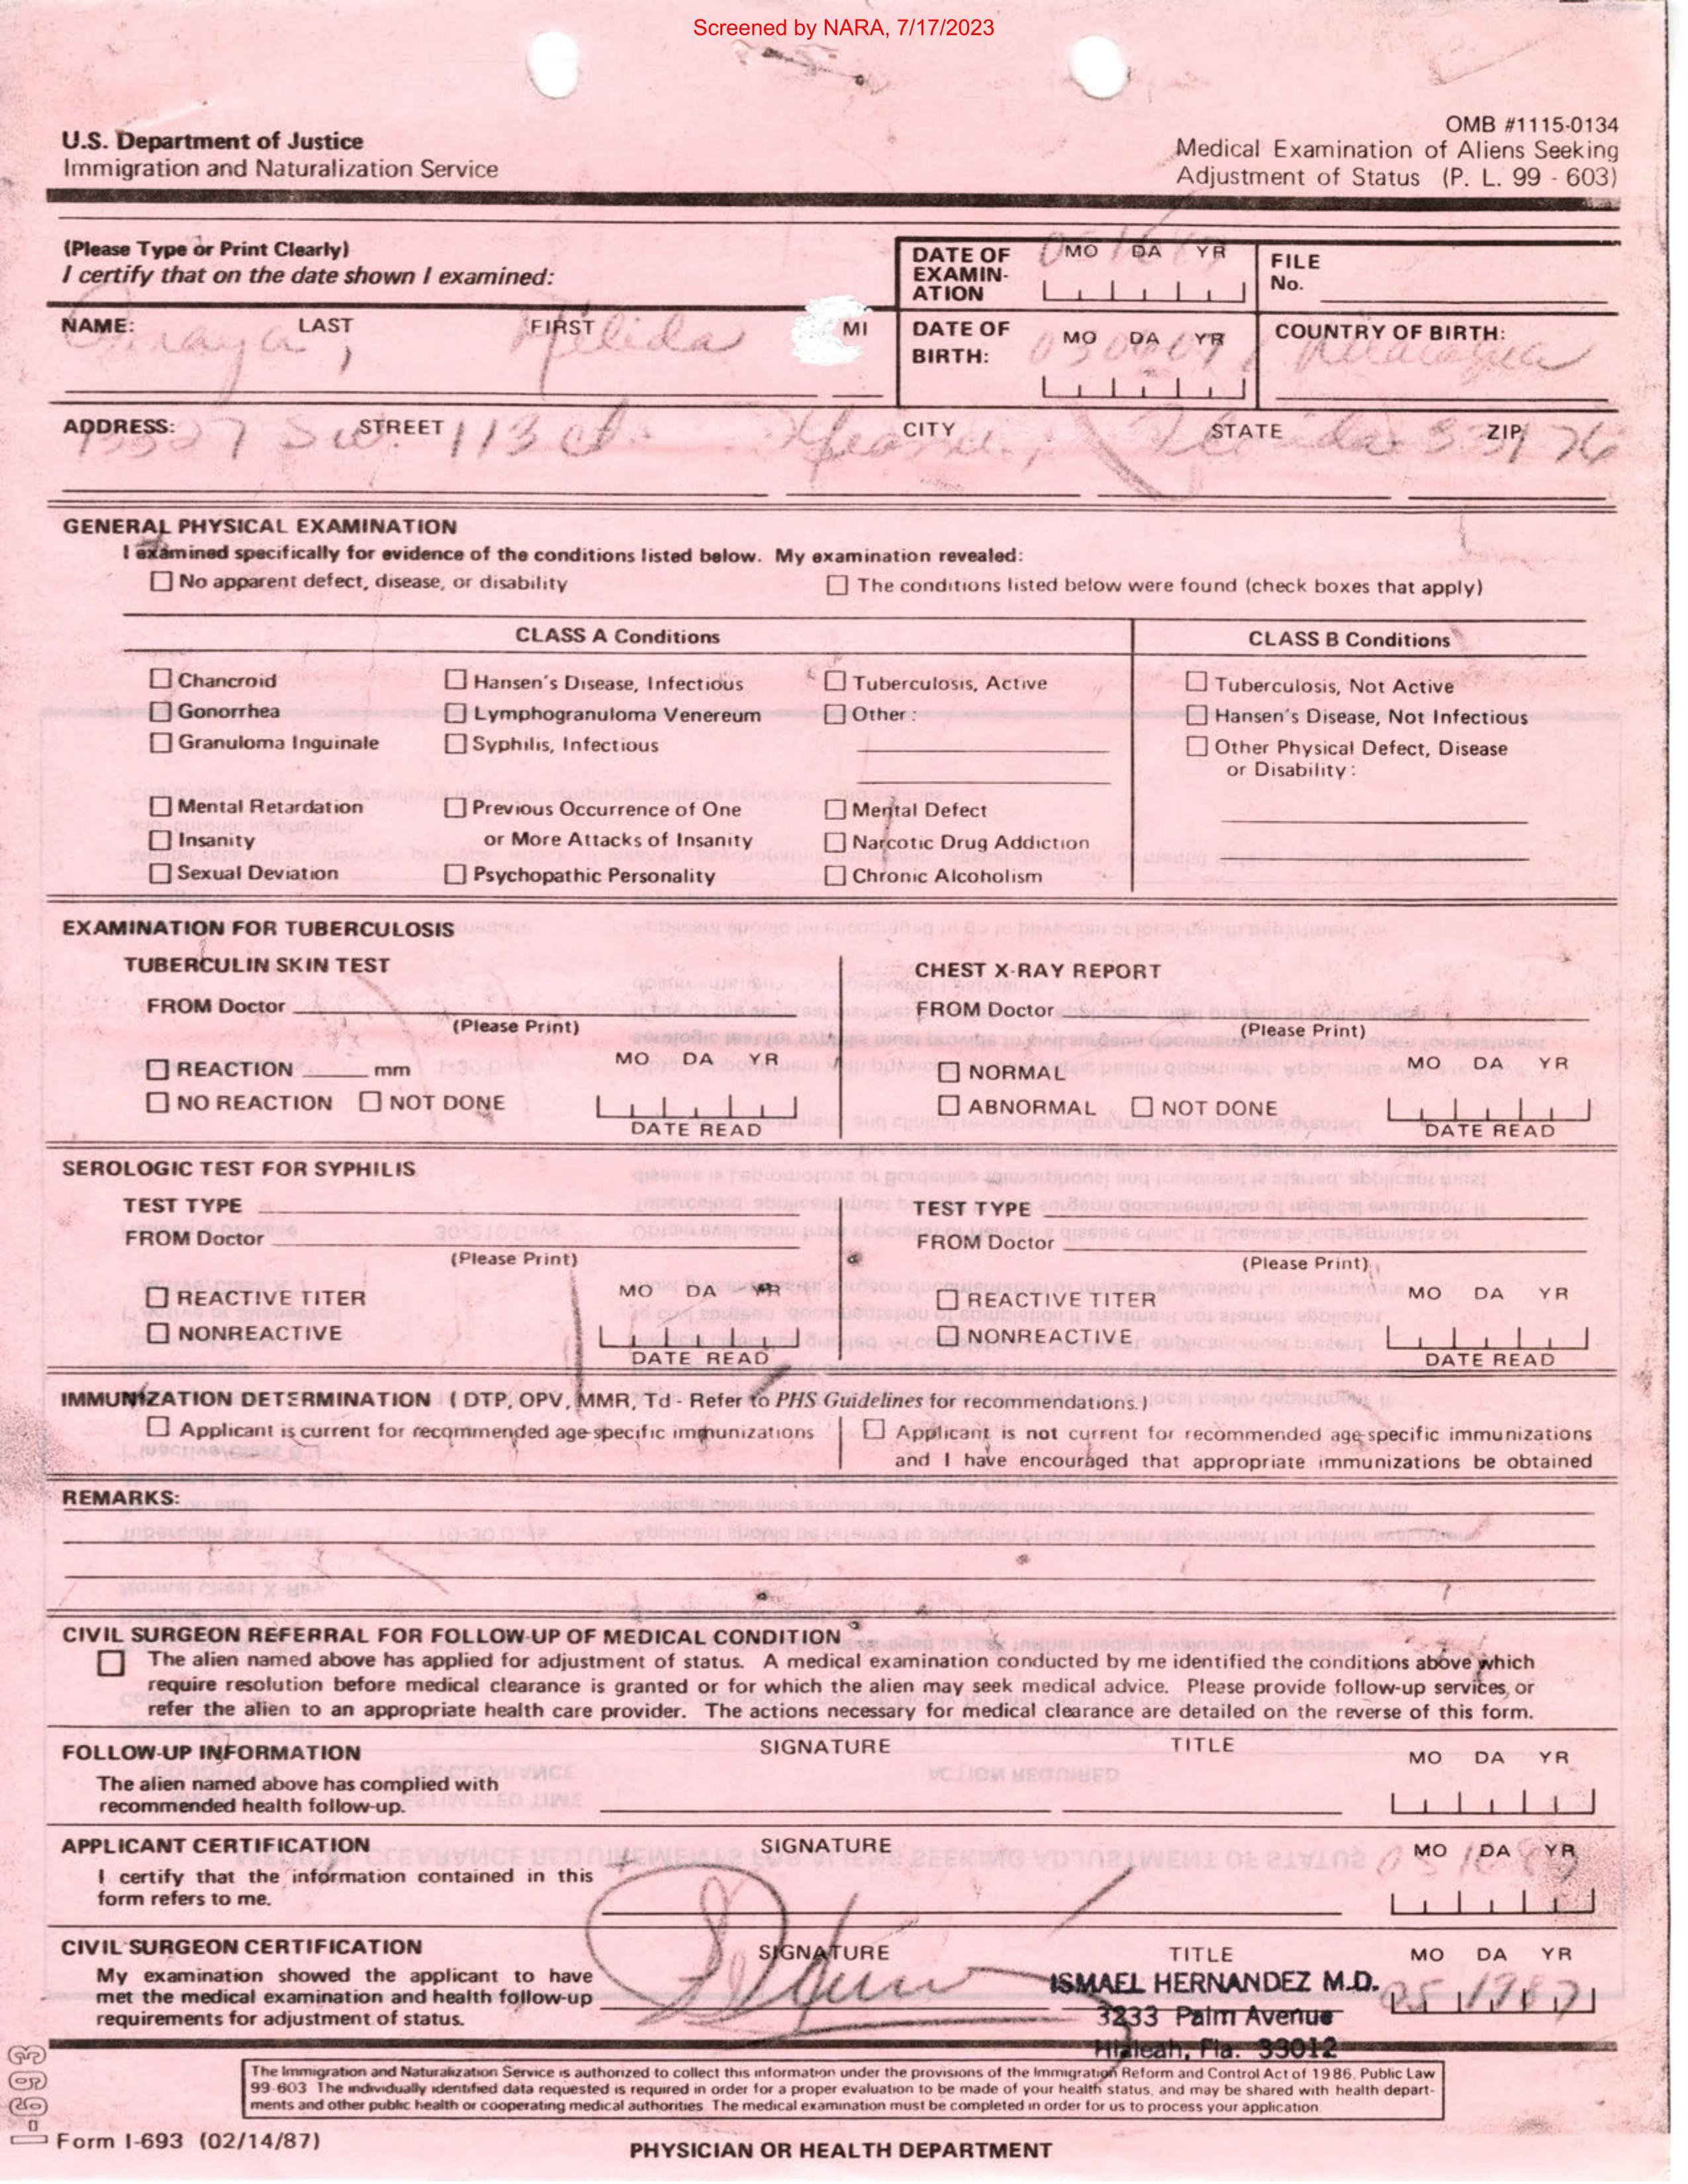 Screened by NARA, 7/17/2023
OMB #1115-0134
U.S. Department of Justice
Immigration and Naturalization Service
Medical Examination of Aliens Seeking
Adjustment of Status (P. L. 99 - 603)
(Please Type or Print Clearly)
I certify that on the date shown I examined:
DATE OF EXAMIN-ATION MO DA YR
FILE No.
NAME: LAST FIRST MI
DATE OF BIRTH: MO DA YR
COUNTRY OF BIRTH:
ADDRESS: STREET CITY STATE ZIP
SW. 113 33176
GENERAL PHYSICAL EXAMINATION
I examined specifically for evidence of the conditions listed below. My examination revealed:
No apparent defect, disease, or disability
The conditions listed below were found (check boxes that apply)
CLASS A Conditions
CLASS B Conditions
Chancroid
Hansen's Disease, Infectious
Tuberculosis, Active
Tuberculosis, Not Active
Gonorrhea
Lymphogranuloma Venereum
Other:
Hansen's Disease, Not Infectious
Granuloma Inguinale
Syphilis, Infectious
Other Physical Defect, Disease
or Disability:
Mental Retardation
Previous Occurrence of One
or More Attacks of Insanity
Mental Defect
Insanity
Narcotic Drug Addiction
Sexual Deviation
Psychopathic Personality
Chronic Alcoholism
EXAMINATION FOR TUBERCULOSIS
TUBERCULIN SKIN TEST
FROM Doctor
(Please Print)
MO DA YR
REACTION mm
NO REACTION NOT DONE
DATE READ
CHEST X-RAY REPORT
FROM Doctor
(Please Print)
MO DA YR
NORMAL
ABNORMAL NOT DONE
DATE READ
SEROLOGIC TEST FOR SYPHILIS
TEST TYPE
FROM Doctor
(Please Print)
MO DA YR
REACTIVE TITER
NONREACTIVE
DATE READ
TEST TYPE
FROM Doctor
(Please Print)
MO DA YR
REACTIVE TITER
NONREACTIVE
DATE READ
IMMUNIZATION DETERMINATION ( DTP, OPV, MMR, Td - Refer to PHS Guidelines for recommendations.)
Applicant is current for recommended age-specific immunizations
Applicant is not current for recommended age-specific immunizations
and I have encouraged that appropriate immunizations be obtained
REMARKS:
CIVIL SURGEON REFERRAL FOR FOLLOW-UP OF MEDICAL CONDITION
The alien named above has applied for adjustment of status. A medical examination conducted by me identified the conditions above which
require resolution before medical clearance is granted or for which the alien may seek medical advice. Please provide follow-up services, or
refer the alien to an appropriate health care provider. The actions necessary for medical clearance are detailed on the reverse of this form.
FOLLOW-UP INFORMATION SIGNATURE TITLE MO DA YR
The alien named above has complied with
recommended health follow-up.
APPLICANT CERTIFICATION SIGNATURE MO DA YR
I certify that the information contained in this
form refers to me.
CIVIL SURGEON CERTIFICATION SIGNATURE TITLE MO DA YR
My examination showed the applicant to have
met the medical examination and health follow-up
requirements for adjustment of status.
ISMAEL HERNANDEZ M.D.
3233 Palm Avenue
Hialeah, Fla. 33012
The Immigration and Naturalization Service is authorized to collect this information under the provisions of the Immigration Reform and Control Act of 1986, Public Law
99-603 The individually identified data requested is required in order for a proper evaluation to be made of your health status, and may be shared with health depart-
ments and other public health or cooperating medical authorities The medical examination must be completed in order for us to process your application
I-693
Form I-693 (02/14/87)
PHYSICIAN OR HEALTH DEPARTMENT